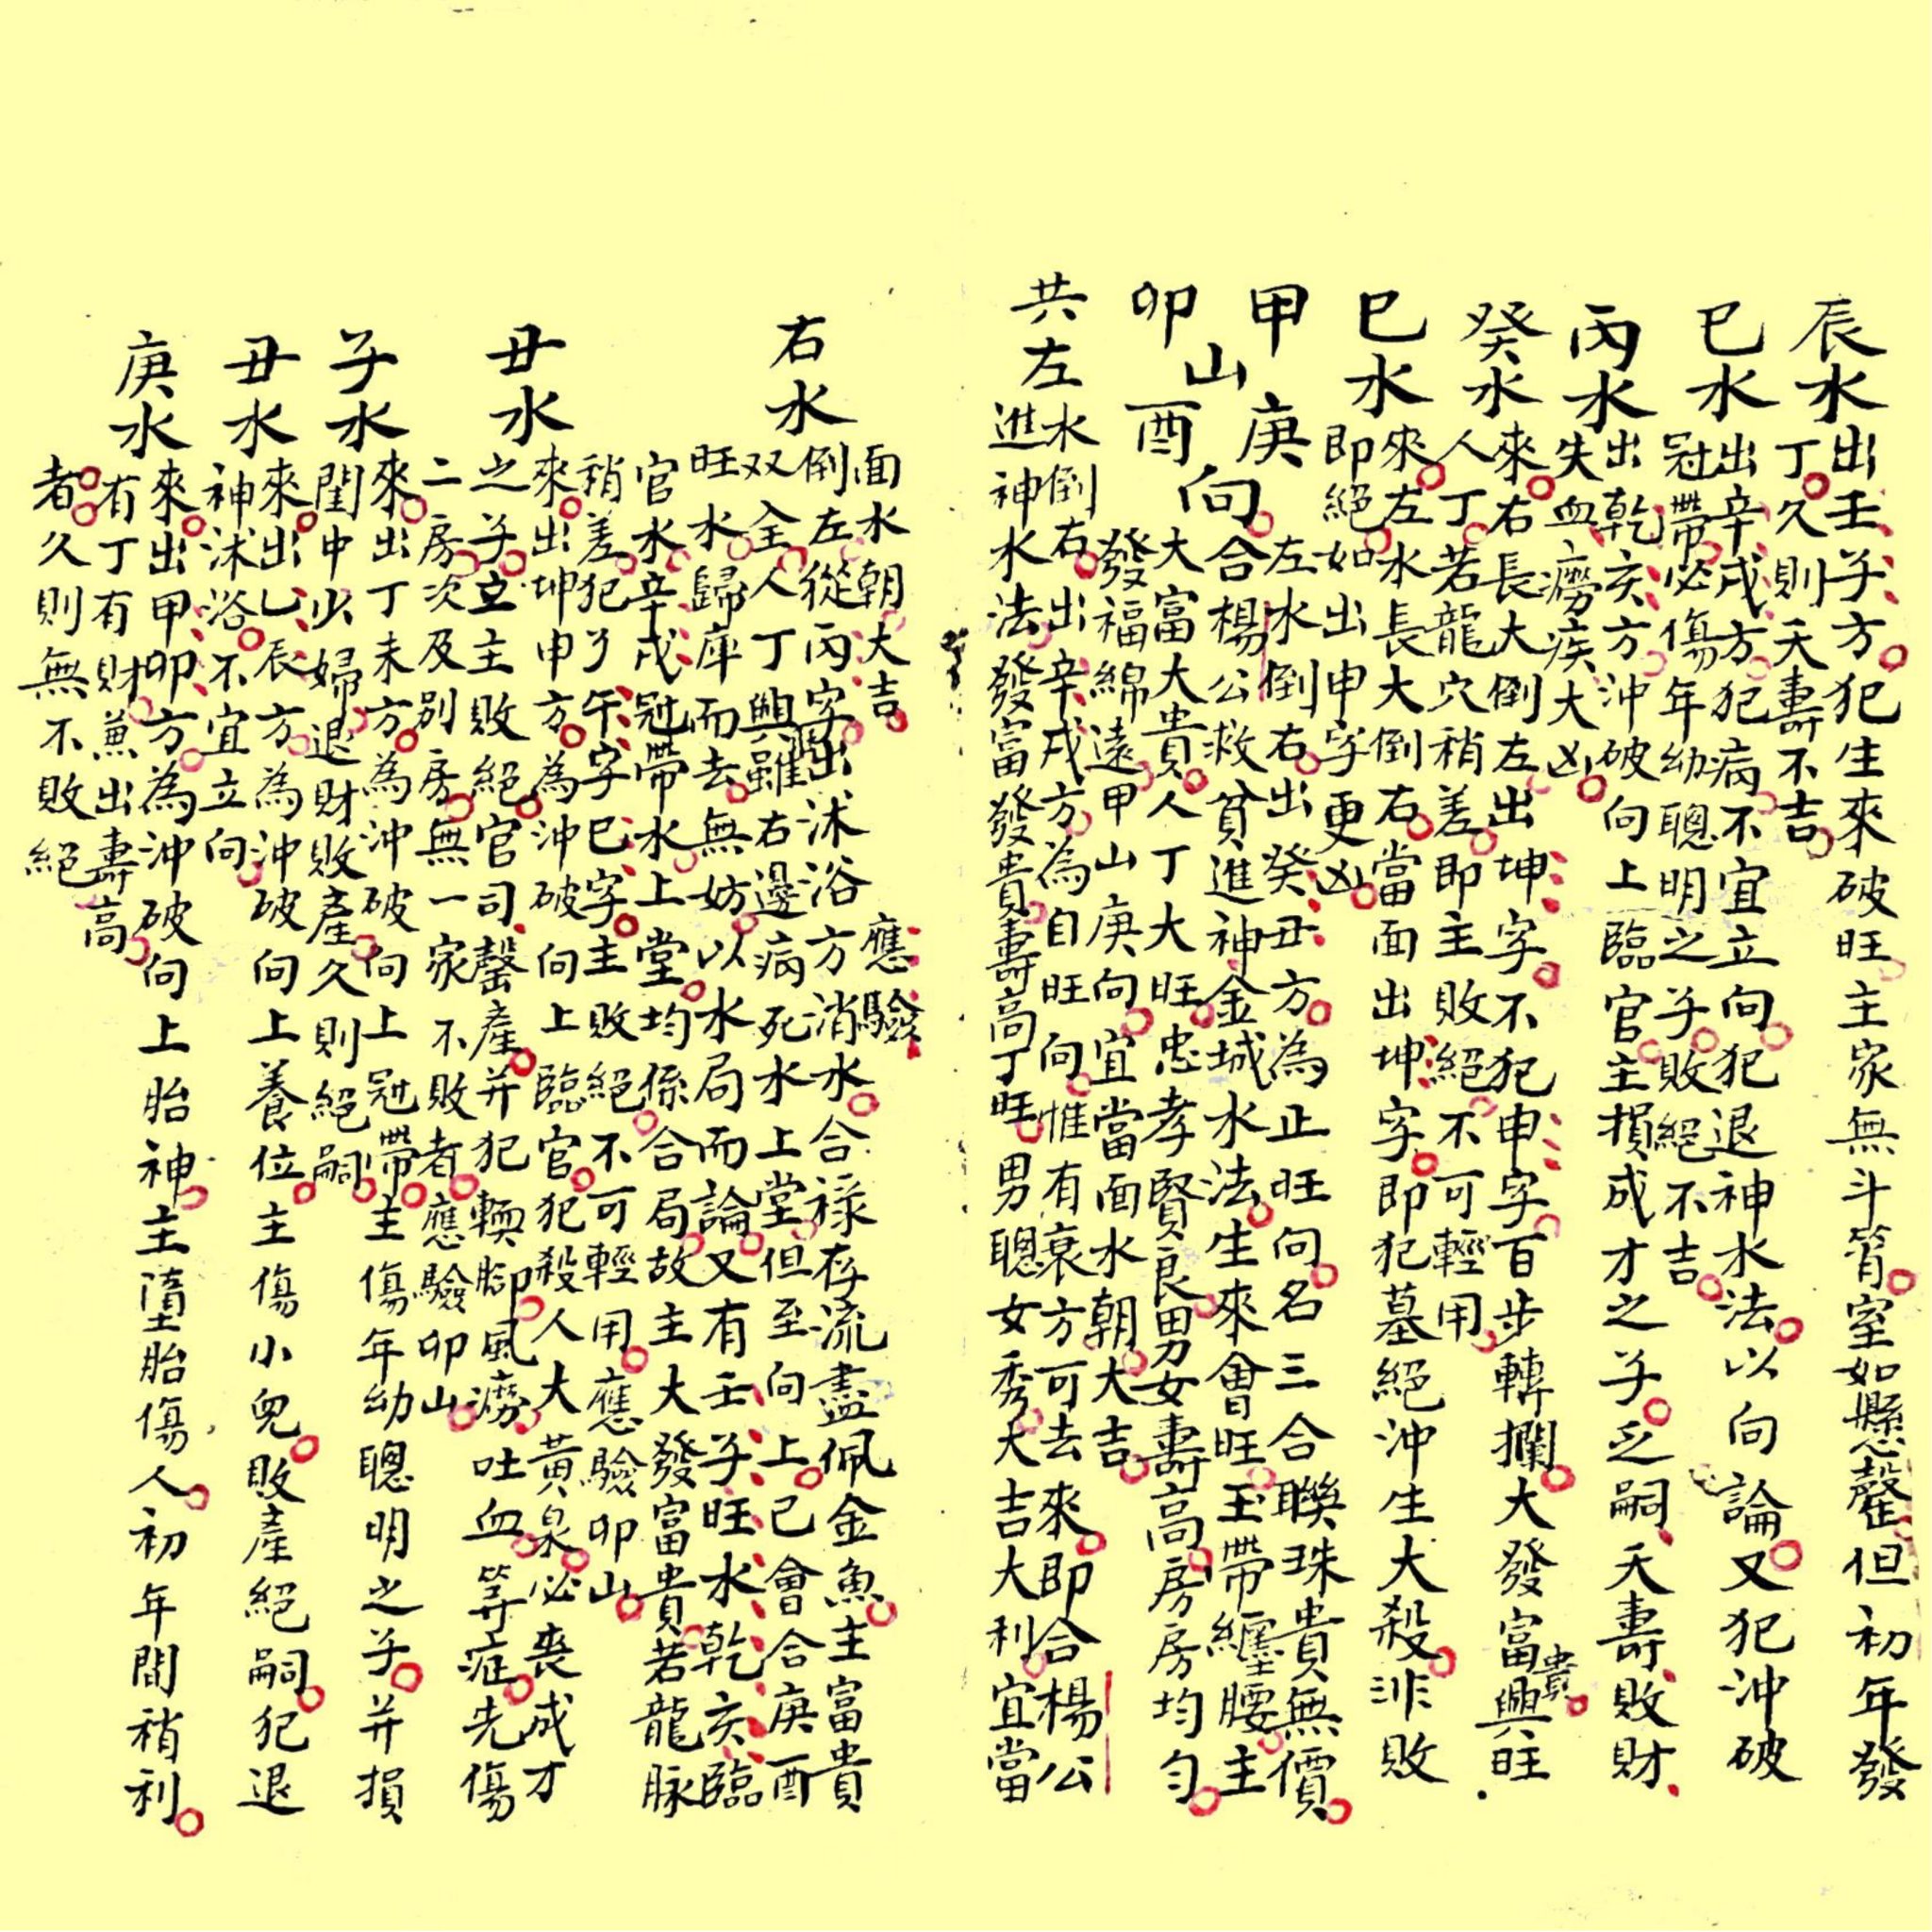 辰水
出壬子方犯生來破旺主家無斗筲室如懸磬但初年發
丁久則夭壽不吉
巳水
出辛戌方犯病不宜立向犯退神水法以向論又犯沖破
冠帶必傷年幼聰明之子敗絕不吉
丙水
出乾亥方沖破向上臨官主損成才之子乏嗣夭壽敗財
失血癆疾大凶
癸水
來右長大倒左出坤字不犯申字百步轉攔大發富貴興旺
人丁若龍穴稍差即主敗絕不可輕用
巳水
來左水長大倒右當面出坤字即犯墓絕沖生大殺非敗
即絕如出申字更凶
甲庚
山向
卯酉
左水倒右出癸丑方為正旺向名三合聯珠貴無價
合楊公救貧進神金城水法生來會旺玉帶纏腰主
大富大貴人丁大旺忠孝賢良男女壽高房房均勻
發福綿遠甲山庚向宜當面水朝大吉
共左
水倒右出辛戌方為自旺向惟有衰方可去來即合楊公
進神水法發富發貴壽高丁旺男聰女秀大吉大利宜當
面水朝大吉
應驗
右水
倒左從丙字出沐浴方消水合祿存流盡佩金魚主富貴
双全人丁興旺雖右邊病死水上堂但至向上已會合庚酉
旺水歸庫而去無妨以水局而論又有壬子旺水乾亥臨
官水辛戌冠帶水上堂均係合局故主大發富貴若龍脉
稍差犯丫午字巳字主敗絕不可輕用應驗卯山
丑水
來出坤申方為沖破向上臨官犯殺人大黃泉必喪成才
之子立主敗絕官司罄產并犯輭腳風癆吐血等症先傷
二房次及別房無一家不敗者應驗卯山
子水
來出丁未方為沖破向上冠帶主傷年幼聰明之子并損
閨中少婦退財敗產久則絕嗣
丑水
來出乙辰方為沖破向上養位主傷小兒敗產絕嗣犯退
神沐浴不宜立向
庚水
來出甲卯方為沖破向上胎神主墮胎傷人初年間稍利
有丁有財兼出壽高
者久則無不敗絕